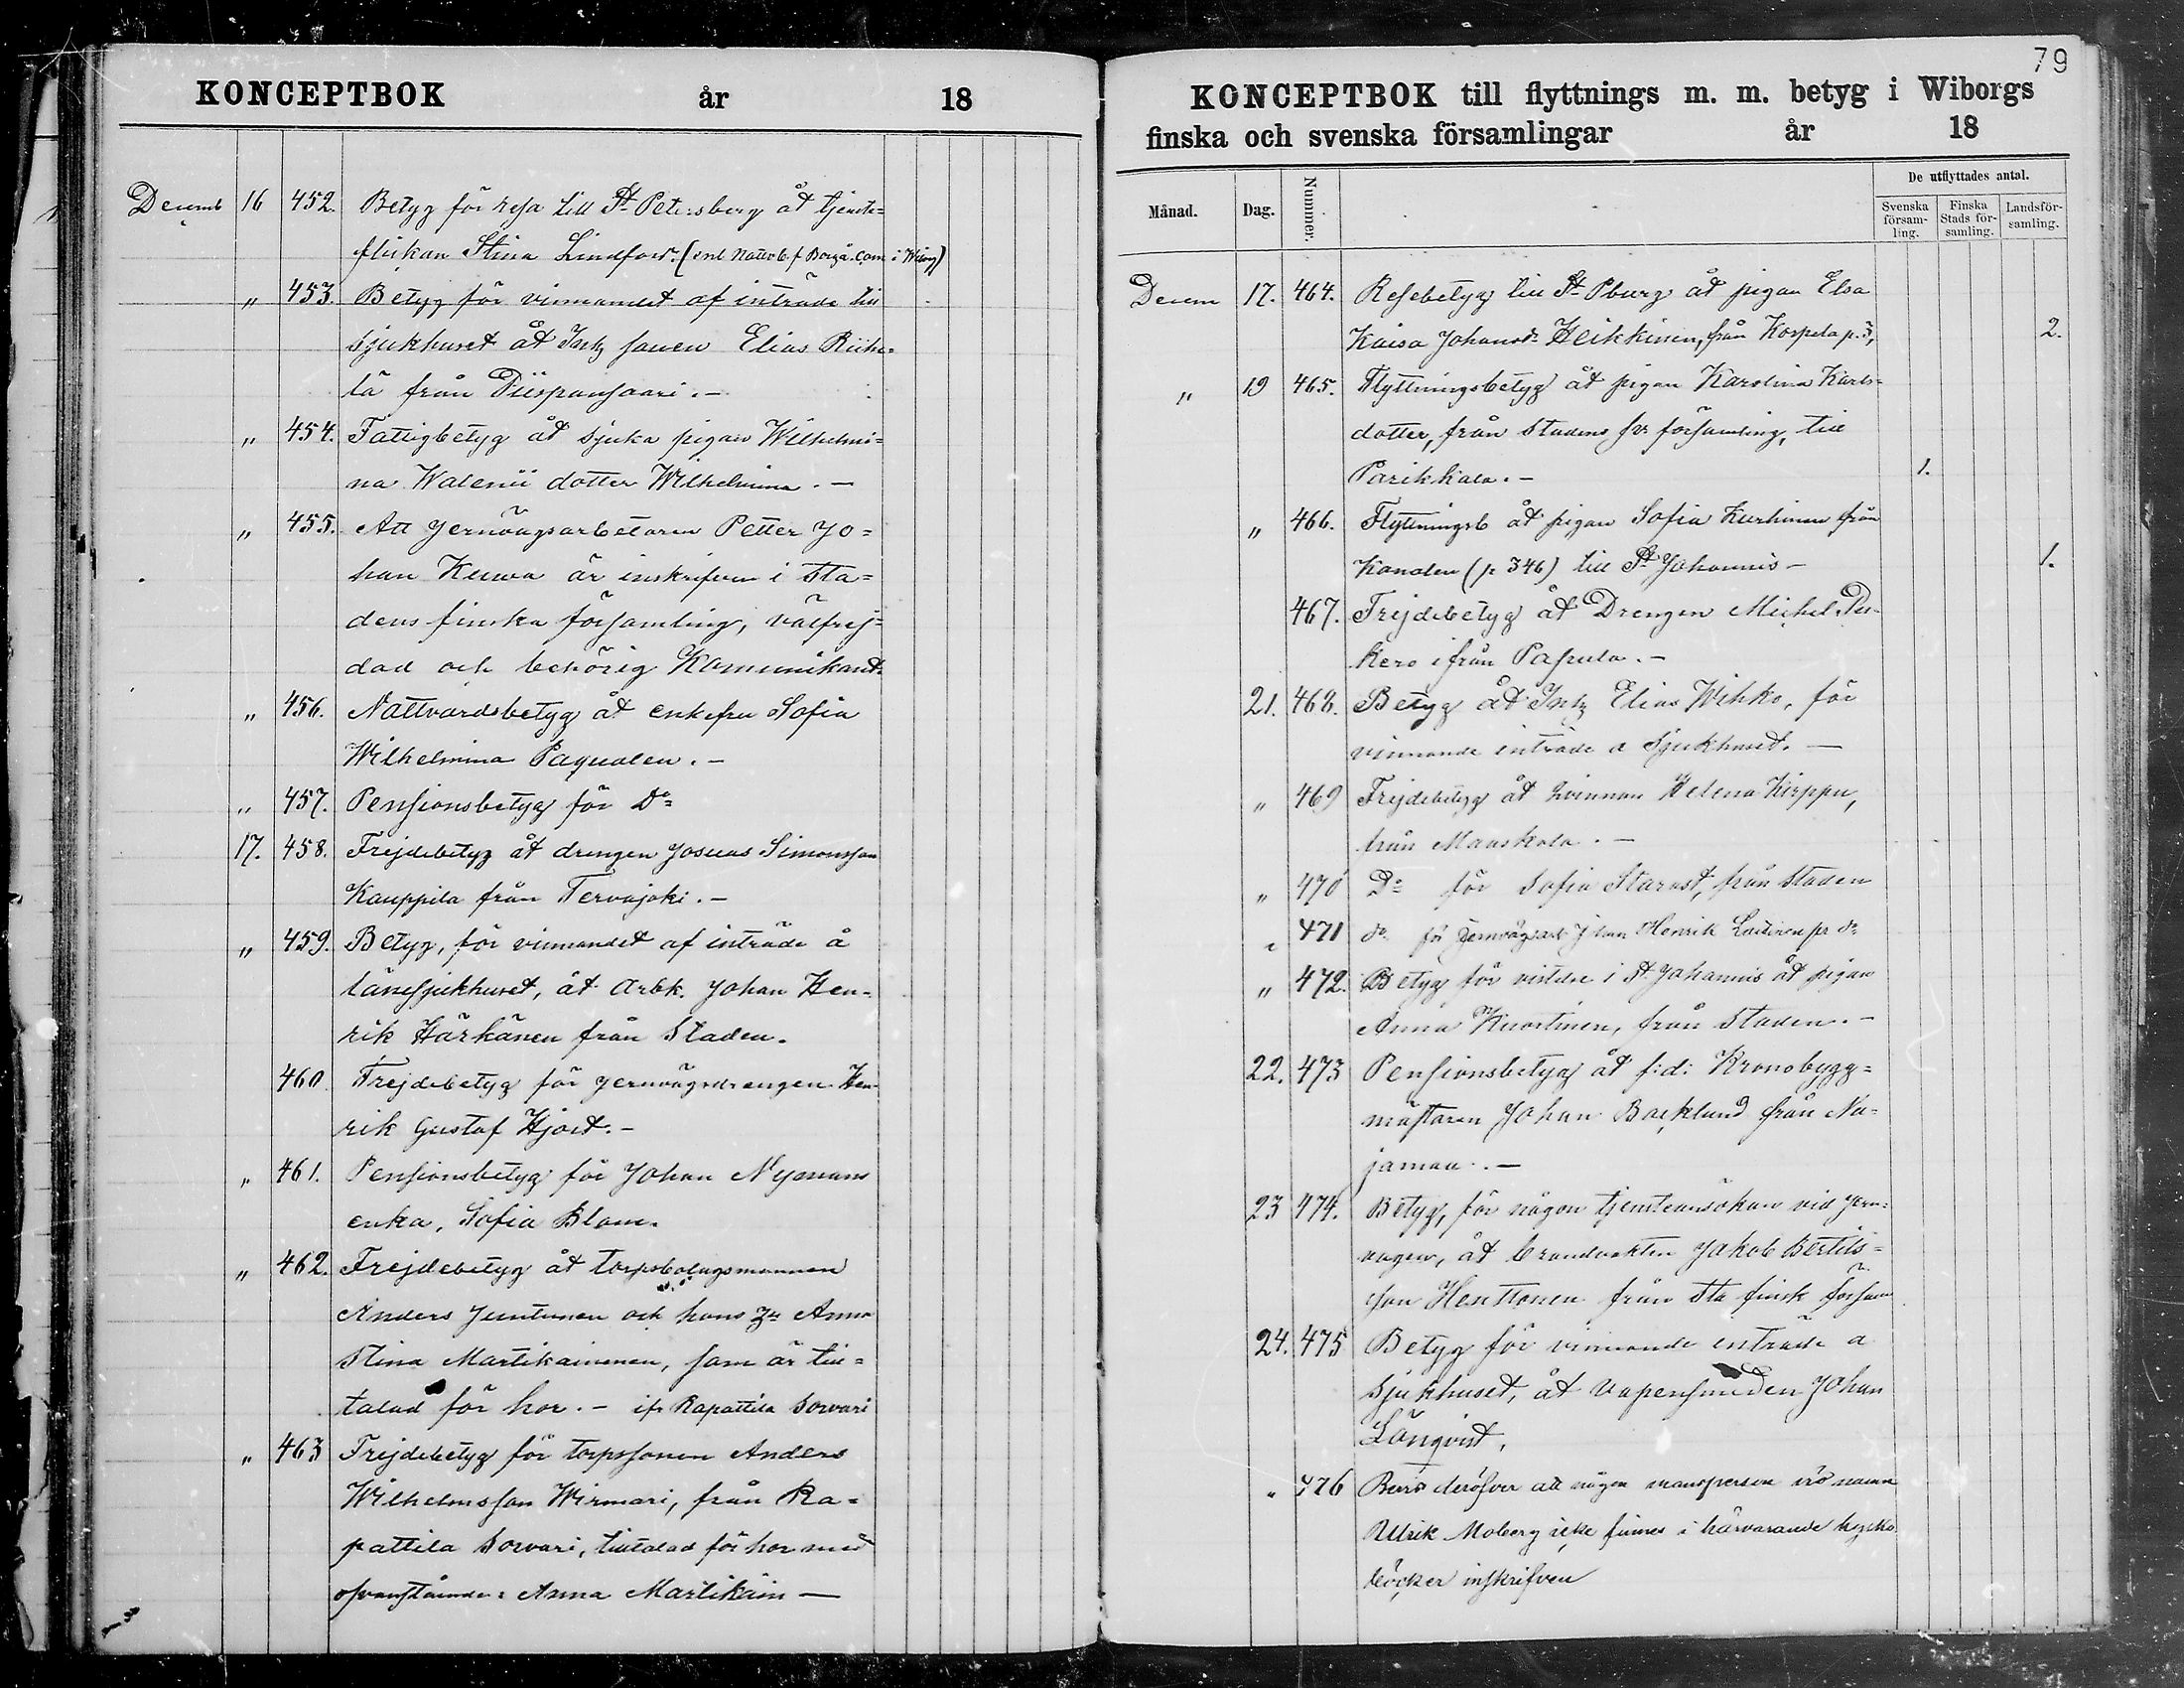 KONCEPTBOK år 18
Decemb 16 452. Betyg för resa till St Petersberg åt tjenste=
flickan Stina Lindfors. (enl Nattvb. f Borgå. Com i Wiborg)
" 453. Betyg för vinnandet af inträde till
sjukhuset åt Inh sonen Elias Riihe=
lä från Piispansaari.-
" 454. Fattigbetyg åt sjuka pigan Wilhelmi=
na Walenii dotter Wilhelmina. -
" 455. Att Jernvägsarbetaren Petter Jo=
han Kerwa är inskrifven i sta=
dens finska församling, välfrej=
dad och behörig Kommunikant.
" 456. Nattvardsbetyg åt enkefru Sofia
Wilhelmina Paqualen. -
" 457. Pensionsbetyg för Do
17. 458. Frejdebetyg åt drengen Josuas Simonsson
Kauppila från Tervajoki. -
" 459. Betyg, för vinnandet af inträde å
länesjukhuset, åt Arbk. Johan Hen=
rik Härkänen från Staden.
460. Frejdebetyg för jernvägsdrengen Hen
rik Gustaf Hjort. -
" 461. Pensionsbetyg för Johan Nymans
enka, Sofia Blom.
" 462. Frejdebetyg åt torpsbolagsmannen
Anders Juntunen och hans Anna
Stina Martikainenen, som är till=
talad för hor. - ifr Rapattila Sorvari
" 463 Frejdebetyg för torpssonen Anders
Wilhelmsson Wirmari, från Ra=
pattila Sorvari, tilltalad för hor med
ofvanstående: Anna Martikain —
79
KONCEPTBOK till flyttnings m. m. betyg i Wiborgs
finska och svenska församlingar år 18
Månad. Dag. Nummer. De utflyttades antal.
Svenska församling. Finska Stads församling. Landsförsamling.
Decem 17. 464. Resebetyg till St Pburg åt pigan Elsa
Kaisa Johansd. Heikkinen, från Korpela p. 3, 2.
" 19 465. Flyttningsbetyg åt pigan Karolina Karls=
dotter, från Stadens sv. församling, till
Parikkala. - 1.
" 466. Flyttningsb åt pigan Sofia Kurhinen från
Kanalen (p 346) till St Johannis - 1.
467. Frejdebetyg åt Drengen Michel Pes
kero ifrån Papula. -
21. 468. Betyg åt Inh Elias Wihko, för
vinnande inträde a Sjukhuset. —
" 469 Frejdebetyg åt Kvinnan Helena Kirppu,
från Manskola. -
" 470 Do för Sofia Starast, från staden
" 471 do för Jernvägsarb Johan Henrik Laitinen fr do
" 472. Betyg för vistelse i St Johannis åt pigan
Anna Kuortinen, från Staden. -
22. 473 Pensionsbetyg åt f:d: Kronobygg=
mästaren Johan Backlund från Na=
jaman. -
23 474. Betyg, för någon tjensteansökan vid jern=
vägen, åt brandvakten Jakob Bertils=
son Henttonen från Sta finsk försam
24. 475 Betyg för vinnande inträde a
Sjukhuset, åt vapensmeden Johan
Lönqvist,
" 476 Bevis deröfver att någon mansperson vid namn
Ulrik Moberg icke finnes i härvarande kyrko
böcker inskrifven